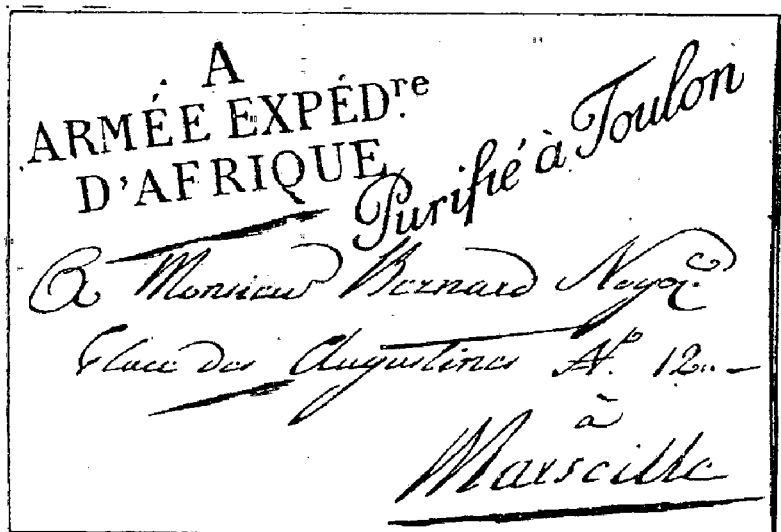 A
ARMÉE EXPÉDre
D'AFRIQUE
Purifié à Toulon
A Monsieur Bernard Negot
Place des Augustines No. 12
à
Marseille